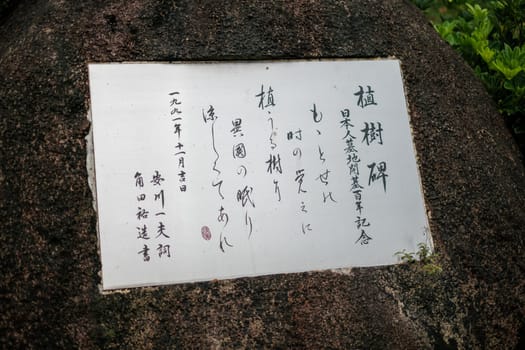 植樹碑
日本人墓地開墓百年記念
もゝとせの
時の覚えに
植うる樹よ
異國の眠り
涼しくてあれ
一九九一年十一月吉日
安川一夫詞
角田裕造書